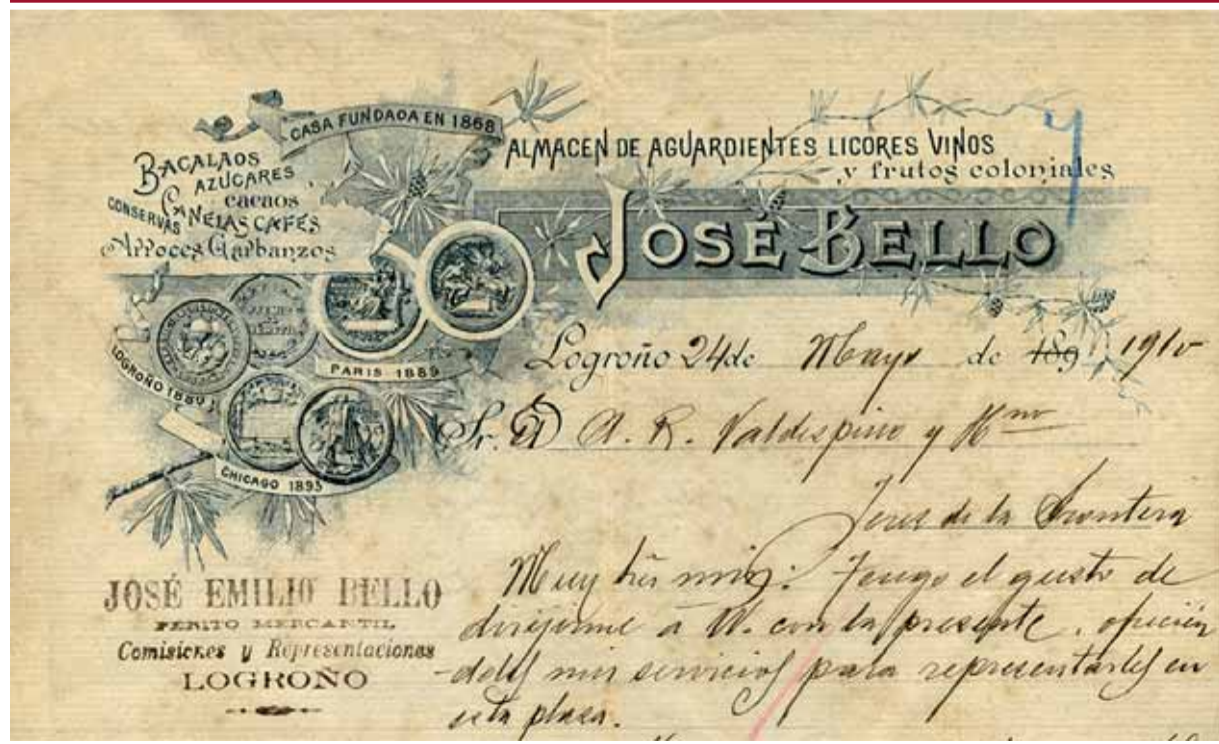 CASA FUNDADA EN 1868
BACALAOS
AZÚCARES
cacaos
CONSERVAS
CANELAS CAFÉS
Arroces Garbanzos
ALMACEN DE AGUARDIENTES LICORES VINOS
y frutos coloniales
JOSÉ BELLO
PARIS 1889
LOGROÑO 1889
CHICAGO 1893
Logroño 24 de Mayo de 189 1910
Sr. D A. R. Valdespino y Hno
Jerez de la Frontera
JOSÉ EMILIO BELLO
PERITO MERCANTIL
Comisiones y Representaciones
LOGROÑO
Muy Srs mios: Tengo el gusto de
dirijirme a V. con la presente, ofrecien
-doles mis servicios para representarles en
esta plaza.